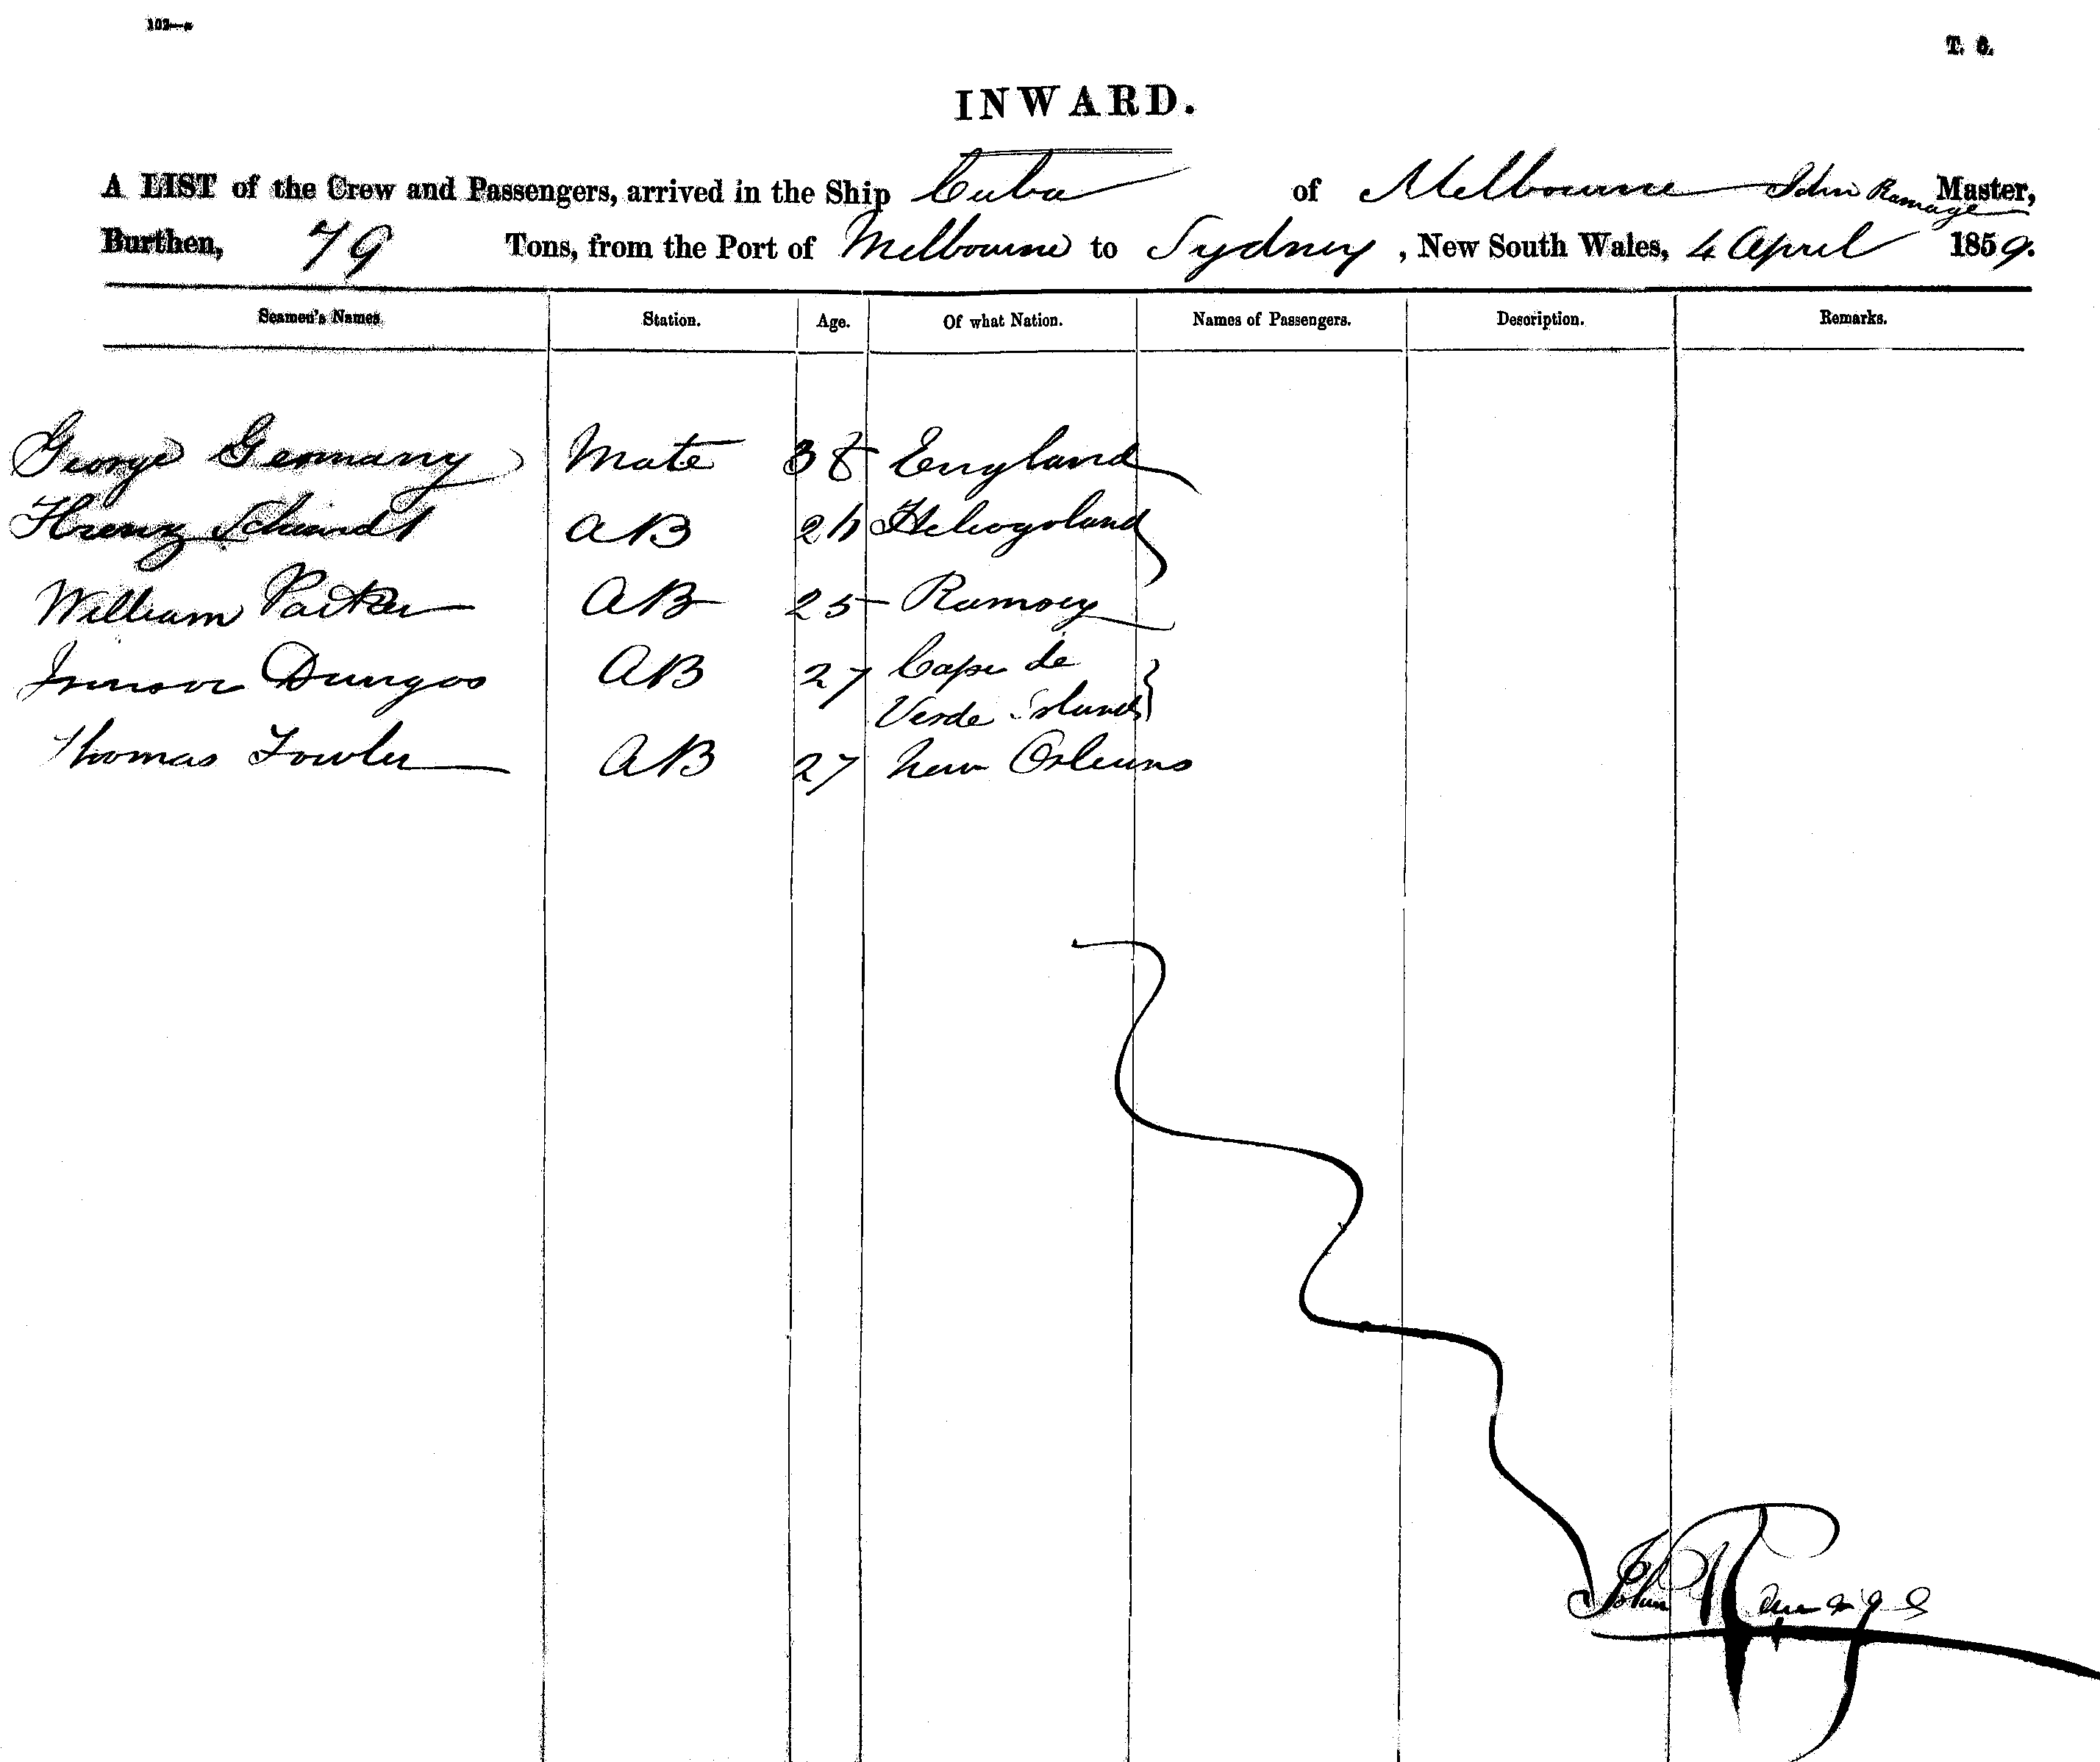 T. 6.
INWARD.
A LIST of the Crew and Passengers, arrived in the Ship Cuba of Melbourne John Ramage Master,
Burthen, 79 Tons, from the Port of Melbourne to Sydney, New South Wales, 4 April 1859.
Seamen's Names Station. Age. Of what Nation. Names of Passengers. Description. Remarks.
George Germany Mate 38 England
Schmidt AB 24 Heligoland
William Parker AB 25 Ramsey
AB 27 Cape de
Verde Islands
Thomas Fowler AB 27 New Orleans
John Ramage